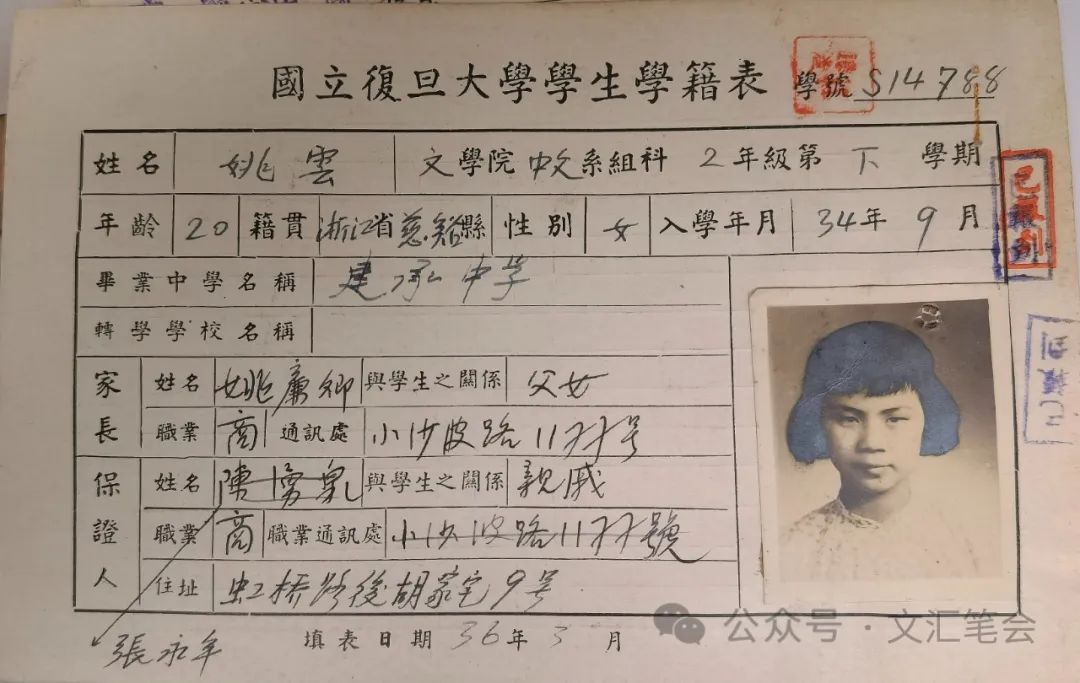 國立復旦大學學生學籍表 學號 S14788
姓名 姚雲 文學院 中文 系組科 2 年級第 下 學期
年齡 20 籍貫 浙江省慈谿縣 性別 女 入學年月 34年 9月
畢業中學名稱 建承中学
轉學學校名稱
家長 姓名 姚廉卿 與學生之關係 父女
職業 商 通訊處 小沙渡路1177号
保證人 姓名 陳 與學生之關係 親戚
職業 商 職業通訊處 小沙渡路1177號
住址 虹桥路後胡家宅9号
張永年 填表日期 36年 3月
已報到
已報到
公众号·文汇笔会